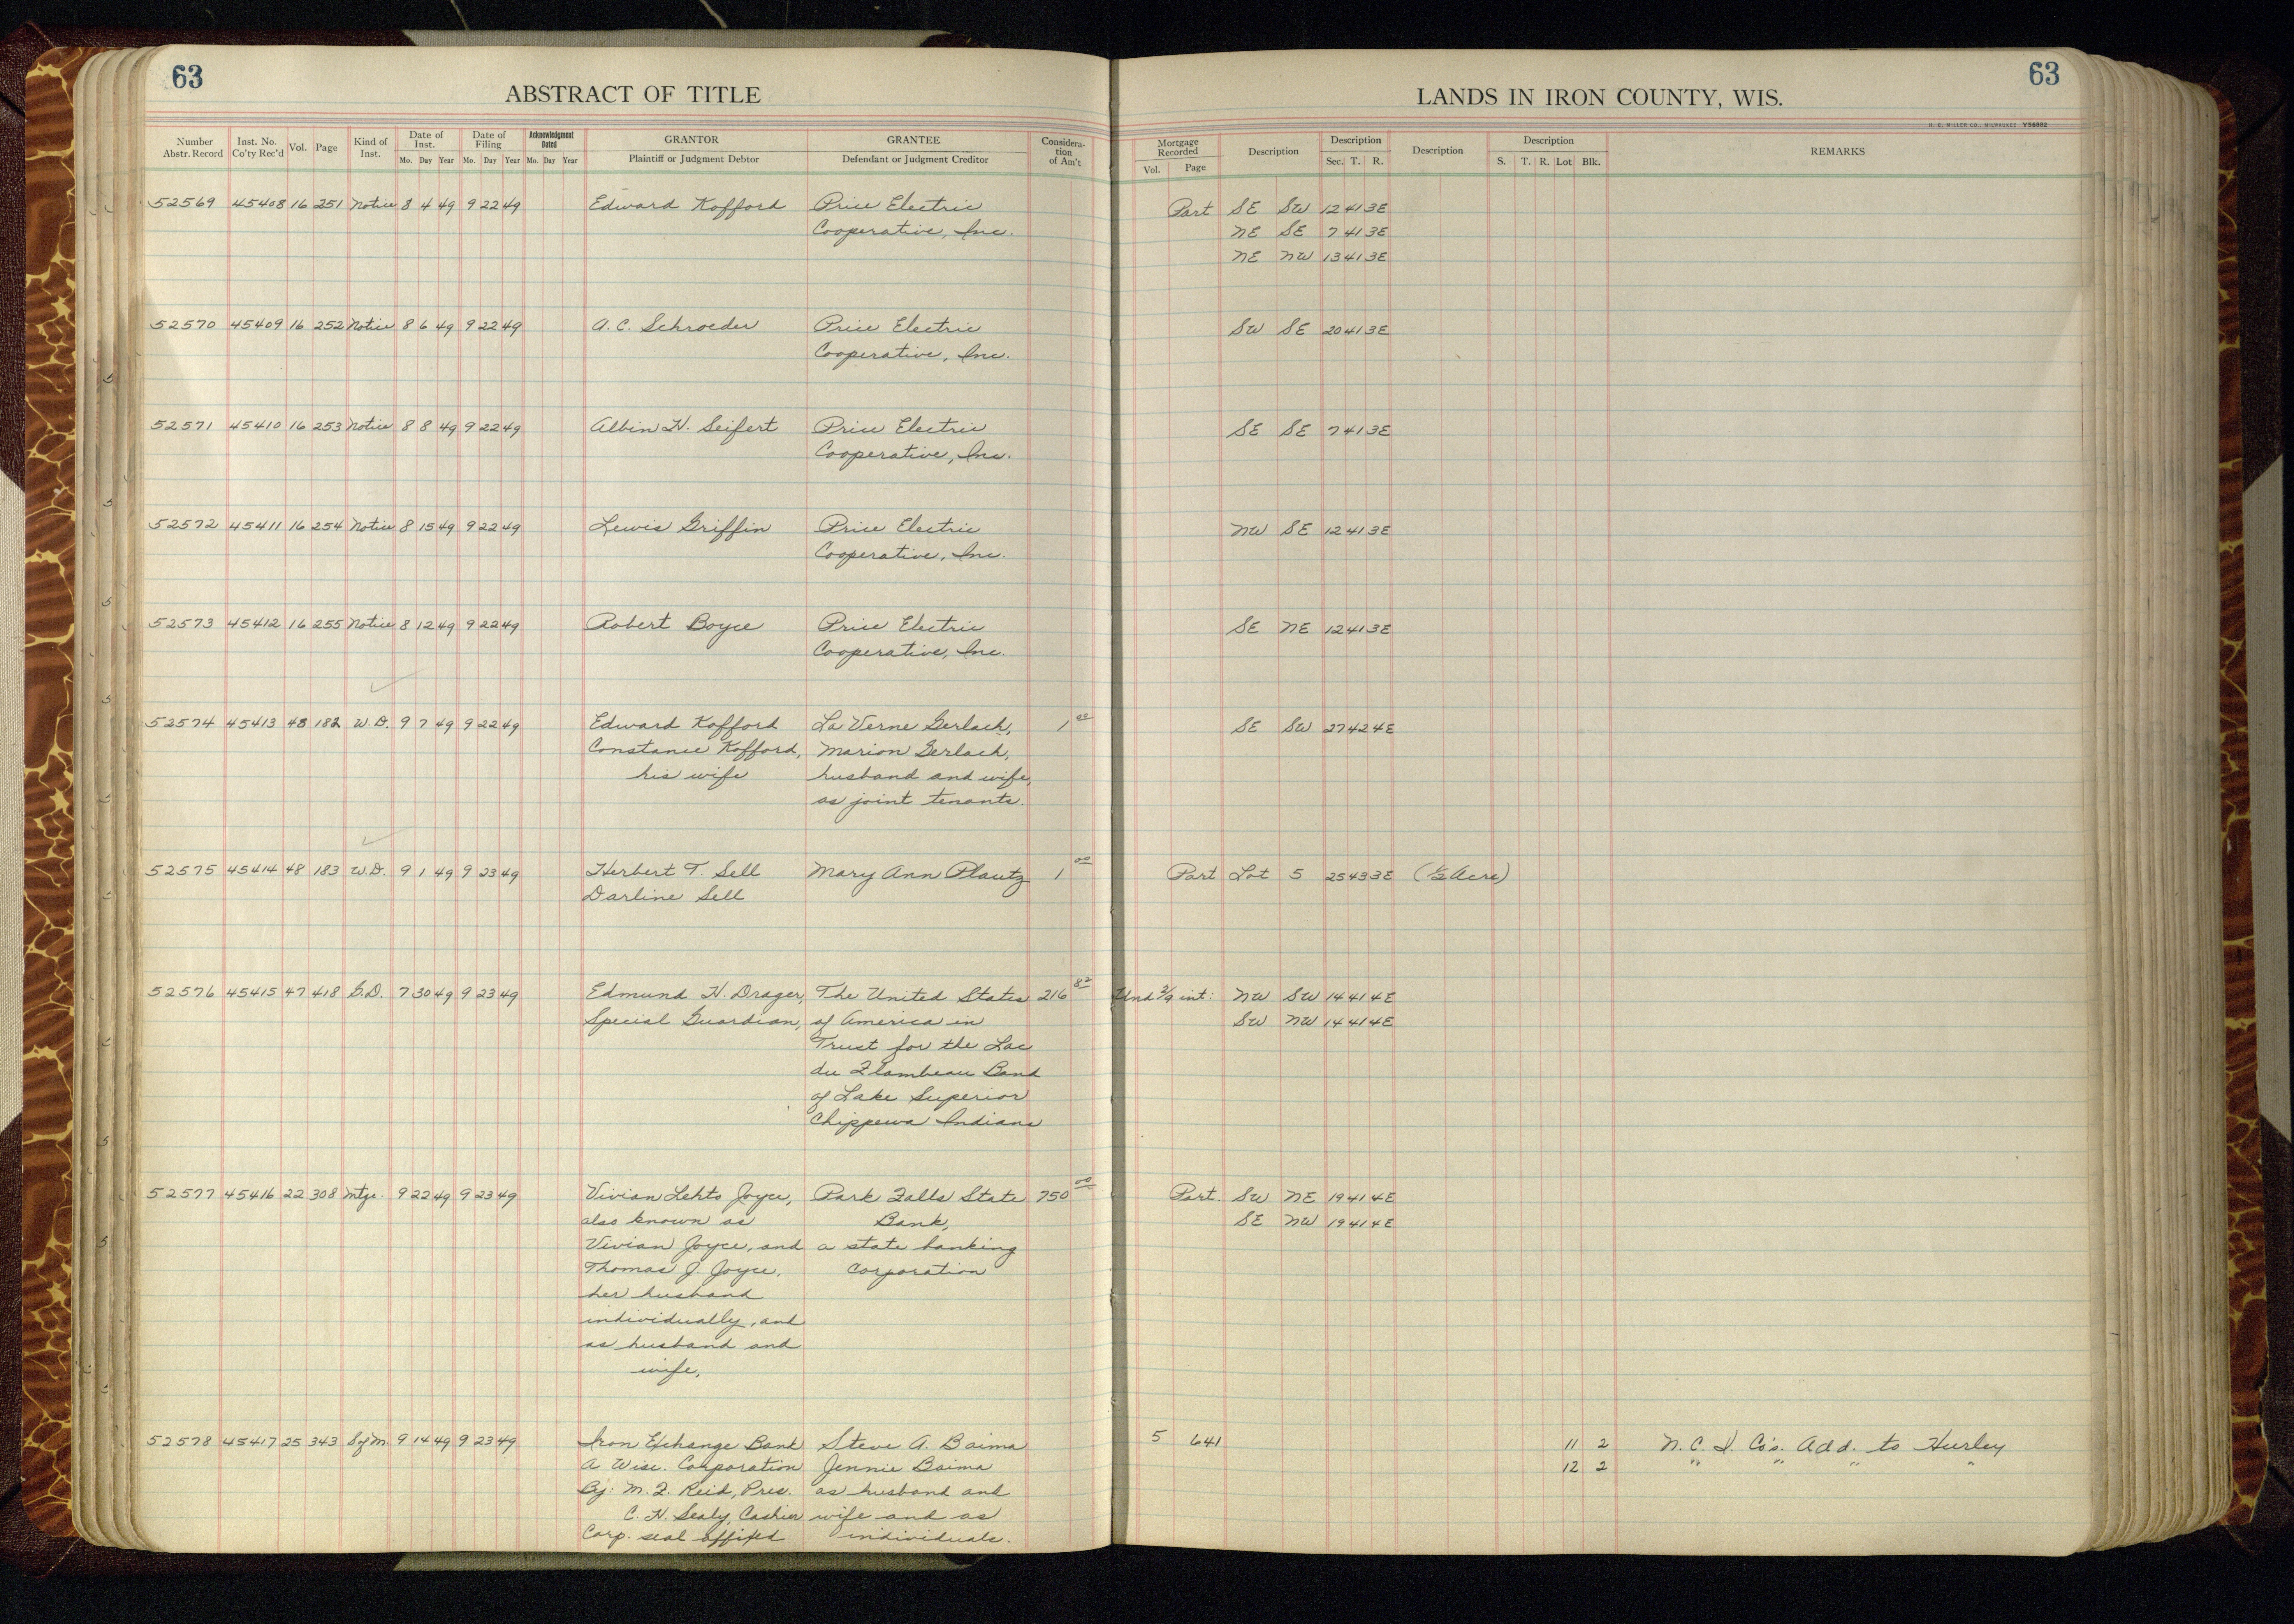 63
ABSTRACT OF TITLE
LANDS IN IRON COUNTY, WIS.
63
H. C. MILLER CO., MILWAUKEE V56682
Number Abstr. Record Inst. No. Co'ty Rec'd Vol. Page Kind of Inst. Date of Inst. Mo. Day Year Date of Filing Mo. Day Year Acknowledgment Dated Mo. Day Year GRANTOR Plaintiff or Judgment Debtor GRANTEE Defendant or Judgment Creditor Consideration of Am't Mortgage Recorded Vol. Page Description Description Sec. T. R. Description Description S. T. R. Lot Blk. REMARKS
52569 45408 16 251 Notice 8 4 49 9 22 49 Edward Kofford Price Electric Part SE SW 12 41 3E
Cooperative, Inc. NE SE 7 41 3E
NE NW 13 41 3E
52570 45409 16 252 Notice 8 6 49 9 22 49 A. C. Schroeder Price Electric SW SE 20 41 3E
Cooperative, Inc.
52571 45410 16 253 Notice 8 8 49 9 22 49 Albin H. Seifert Price Electric SE SE 7 41 3E
Cooperative, Inc.
52572 45411 16 254 Notice 8 15 49 9 22 49 Lewis Griffin Price Electric NW SE 12 41 3E
Cooperative, Inc.
52573 45412 16 255 Notice 8 12 49 9 22 49 Robert Boyce Price Electric SE NE 12 41 3E
Cooperative, Inc.
52574 45413 48 182 W. D. 9 7 49 9 22 49 Edward Kofford La Verne Gerlach, 1 00 SE SW 27 42 4E
Constance Kofford, Marion Gerlach,
his wife husband and wife,
as joint tenants.
52575 45414 48 183 W. D. 9 1 49 9 23 49 Herbert T. Sell Mary Ann Plautz 1 00 Part Lot 5 25 43 3E (½ Acre)
Darline Sell
52576 45415 47 418 G. D. 7 30 49 9 23 49 Edmund H. Drager, The United States 216 Und 2/9 int: NW SW 14 41 4E
Special Guardian, of America in SW NW 14 41 4E
Trust for the Lac
du Flambeau Band
of Lake Superior
Chippewa Indians
52577 45416 22 308 Mtge. 9 22 49 9 23 49 Vivian Lehto Joyce, Park Falls State 750 00 Part SW NE 19 41 4E
also known as Bank, SE NW 19 41 4E
Vivian Joyce, and a state banking
Thomas J. Joyce, Corporation
her husband
individually, and
as husband and
wife,
52578 45417 25 343 S of M. 9 14 49 9 23 49 Iron Exchange Bank Steve A. Baima 5 641 11 2 N. C. I. Co's. Add. to Hurley
A Wisc. Corporation Jennie Baima 12 2 " " " "
By: M. F. Reid, Pres. as husband and
C. H. Sealy, Cashier wife and as
Corp. seal affixed individuals.